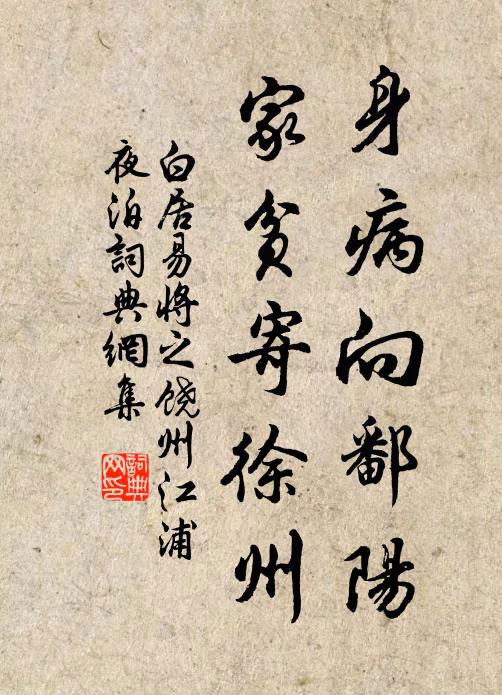 身病向鄱陽
家貧寄徐州
白居易將之饶州江浦
夜泊詞典網集
詞典
网印